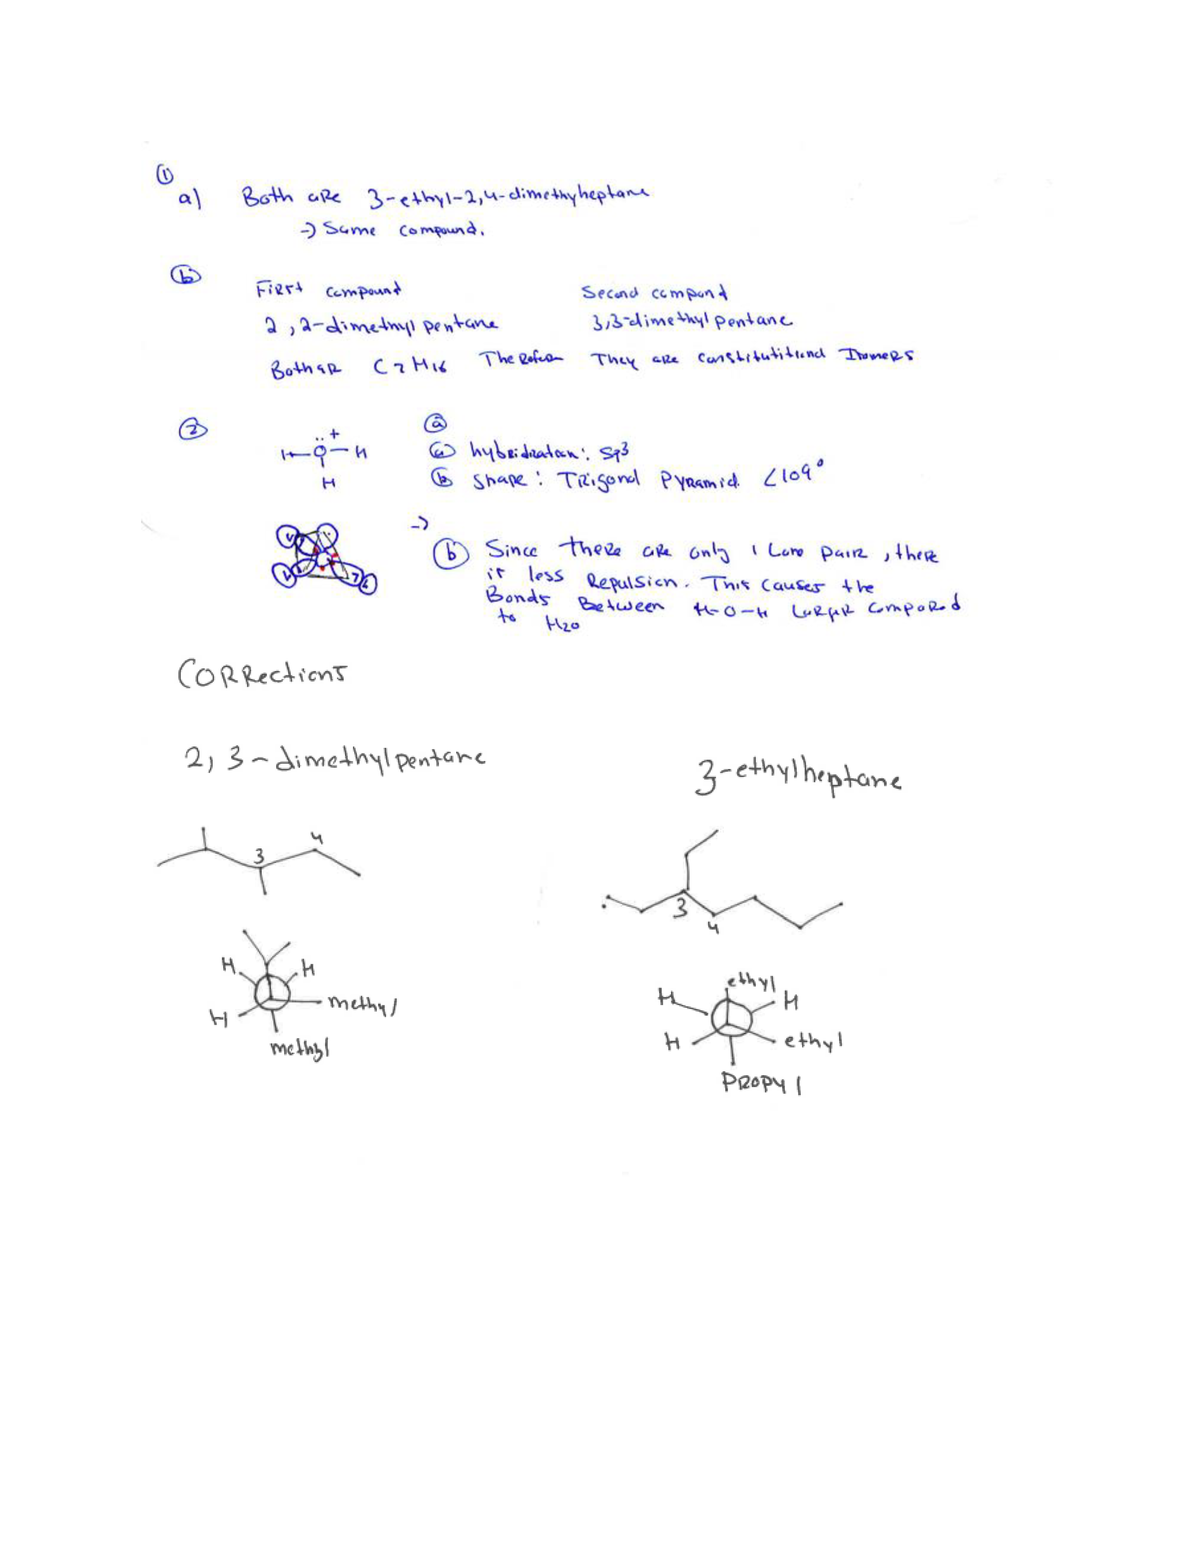 ①
a) Both are 3-ethyl-2,4-dimethylheptane
→ Same compound.
ⓑ
First compound Second compond
2,2-dimethyl pentane 3,3-dimethylpentane
Both are C7H16 Therefore They are constitutitional Isomers
② ⓐ
H–O–H ⓐ hybridization: sp3
H ⓑ shape: Trigonal Pyramid. <109°
→
ⓑ Since there are only 1 Lone pair, there
is less Repulsion. This causes the
Bonds Between H-O-H Larger compared
to H2O
Corrections
2,3-dimethylpentane 3-ethylheptane
3 4
3 4
H H
methyl
H
methyl
ethyl
H H
H ethyl
PROPYl